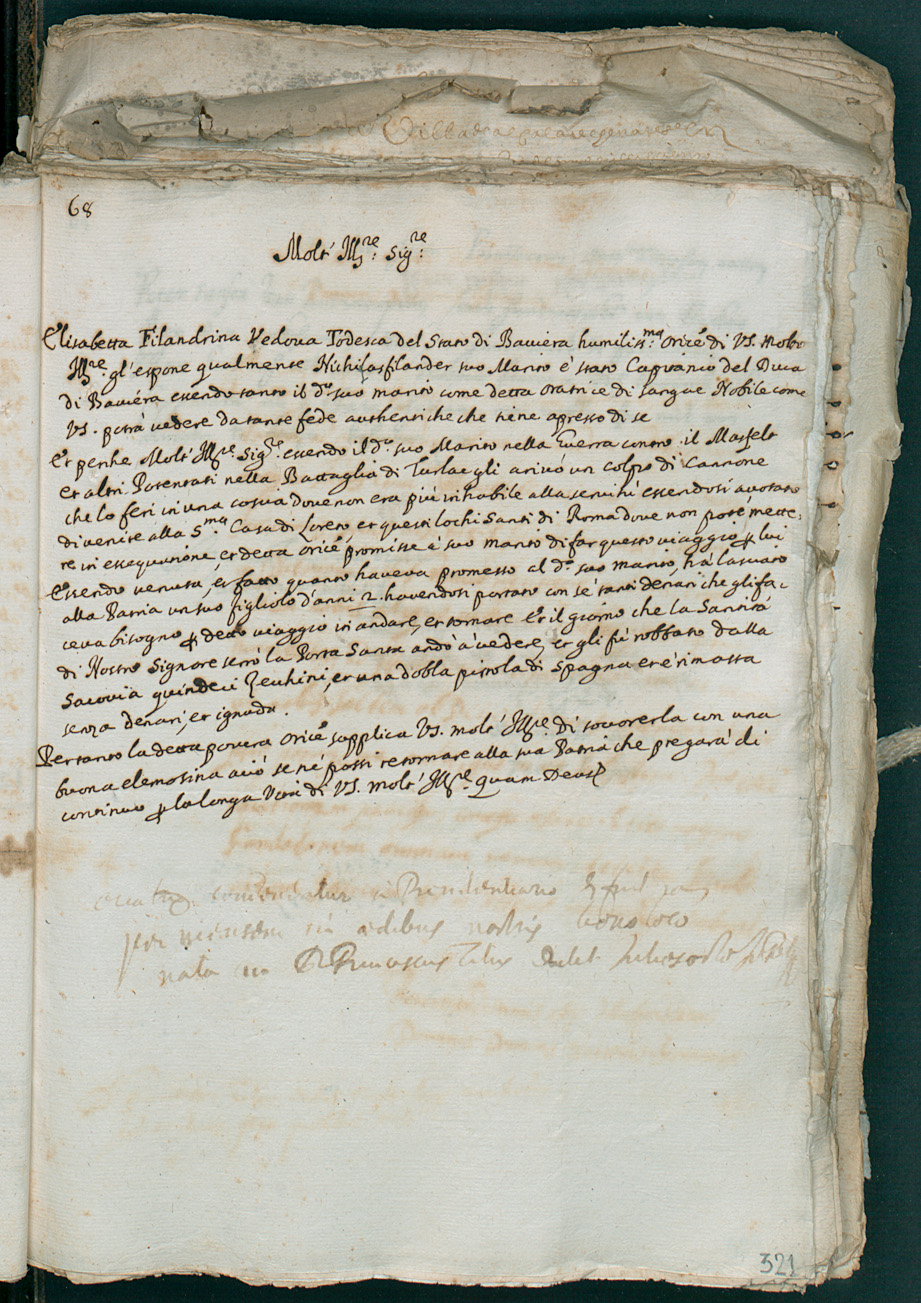 68
Molt' Ill.re: Sig.re:
Elisabetta Filandrina Vedoua Todesca del Stato di Bauiera humiliss.ma: Orice di VS. Molto
Ill.re: gl'espone qualmente Nichilasfilander suo Marito è stato Capitanio del Duca
di Bauiera essendo tanto il d.o suo marito come detta Oratrice di sangue Nobile come
VS. potrà vedere da tante fede authentiche che tiene apresso di se
Et perche Molt' Ill.re: Sig.re: essendo il d.o suo Marito nella Guerra contro il Masfelt
et altri Potentati nella Battaglia di Turlac gli ariuò un colpo di Cannone
che lo ferì in una coscia doue non era più in habile alla seruitù essendosi auotato
di venire alla S.ma Casa di Loreto et questi lochi Santi di Roma doue non potè mette:
re in essequutione, et detta Orice, promisse à suo marito di far questo viaggio p lui
Essendo venuta, et fatto quanto haueva promesso al d.o suo marito, hà lasciato
alla Patria un suo figliolo d'anni 2. havendosi portato con sè tanti denari che gli fa:
ceva bisogno p detto viaggio in andare, et tornare Et il giorno che la Santità
di Nostro Signore serrò la Porta Santa andò à vedere, et gli fù robbato dalla
Sacovia quindeci Zechini, et una dobla pistola di Spagna et è rimasta
senza denari, et ignuda.
Pertanto la detta povera Orice supplica VS. molt' Ill.re: di socorerla con una
buona elemosina aciò se nè possi retornare alla sua Patria che pregarà di
continuo p la longa Vita di VS. molt' Ill.re. Quam Deus
per mensem in edibus nostris
321